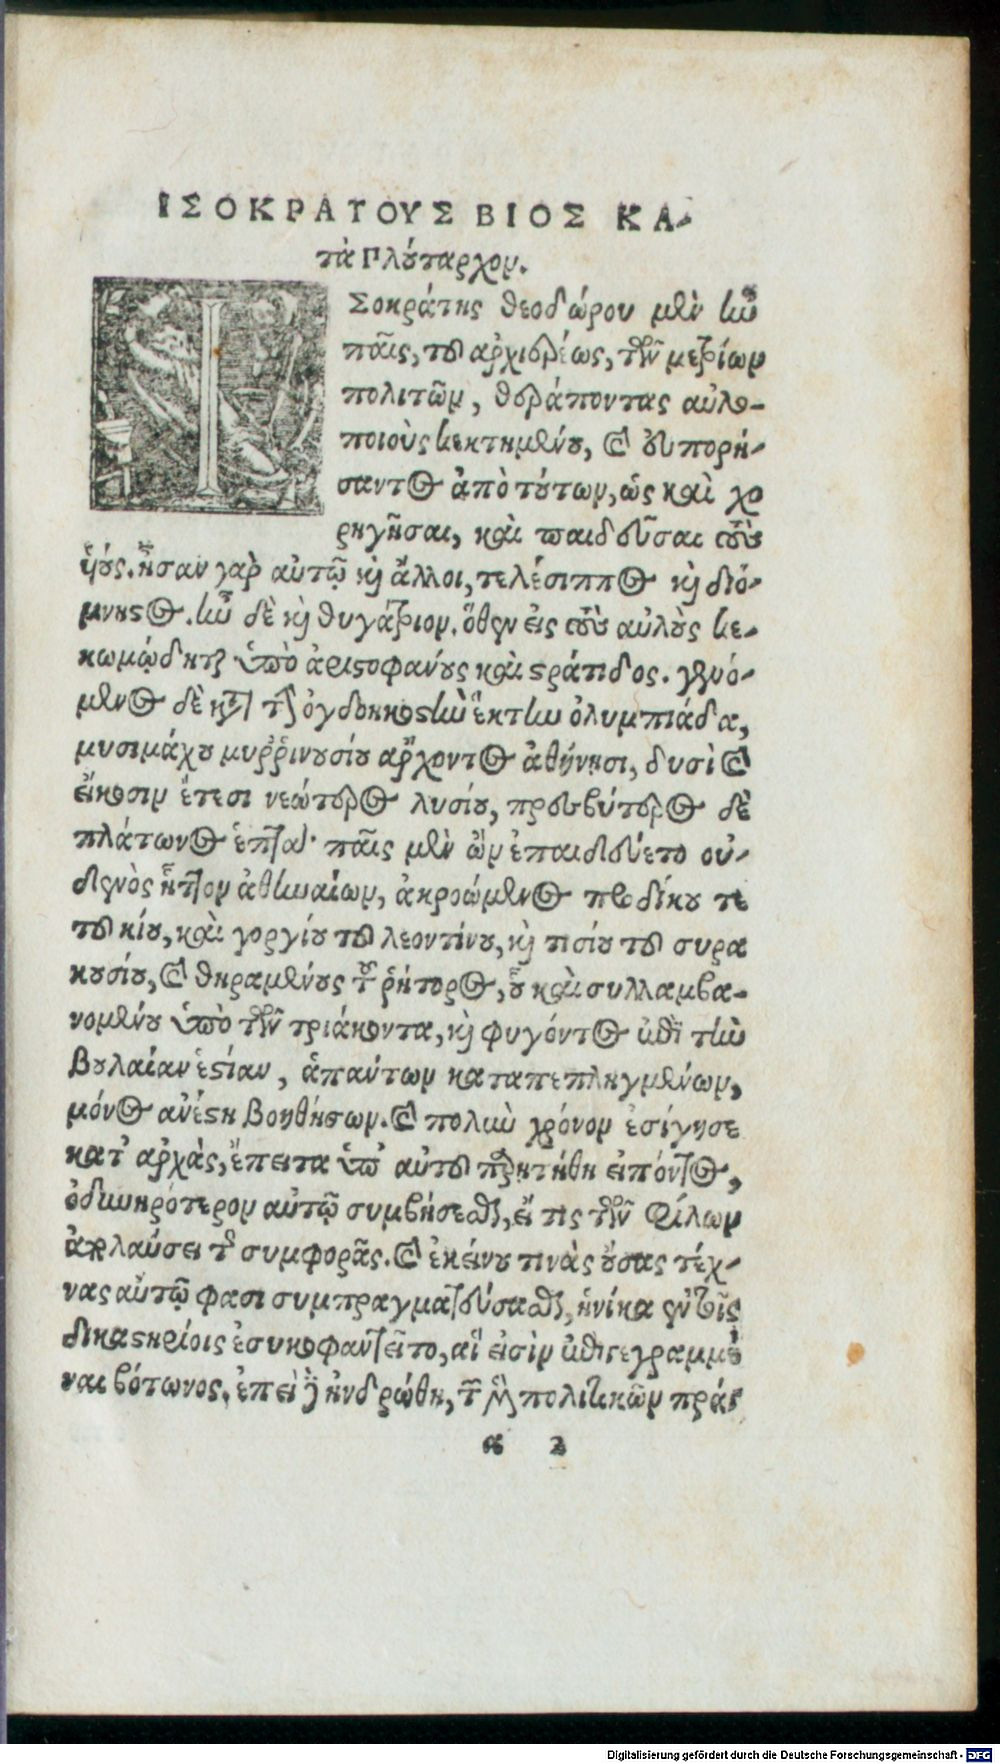 ΙΣΟΚΡΑΤΟΥΣ ΒΙΟΣ ΚΑ-
τὰ Πλούταρχον.
ΙΣοκράτης θεοδώρου μὲν ἦν
παῖς, τοῦ ἀρχιερέως, τῶν μετρίων
πολιτῶν, θεράποντας αὐλο-
ποιοὺς κεκτημένου, καὶ εὐπορή-
σαντος ἀπὸ τούτων, ὡς καὶ χο
ρηγῆσαι, καὶ παιδεῦσαι τοὺς
ἱούς. ἦσαν γὰρ αὐτῷ καὶ ἄλλοι, τελέσιππος καὶ διό-
μνηστος. ἦν δὲ καὶ θυγάτριον. ὅθεν εἰς τοὺς αὐλοὺς κε-
κωμῴδηται ὑπὸ ἀριστοφάνους καὶ στράτιδος. γενό-
μενος δὲ κατὰ τὴν ὀγδοηκοστὴν ἕκτην ὀλυμπιάδα,
μυσιμάχου μυῤῥινουσίου ἄρχοντος ἀθήνησι, δυσὶ καὶ
εἴκοσιν ἔτεσι νεώτερος λυσίου, πρεσβύτερος δὲ
πλάτωνος ἑπτά· παῖς μὲν ὢν ἐπαιδεύετο οὐ-
δενὸς ἧττον ἀθηναίων, ἀκροώμενος προδίκου τε
τοῦ κίου, καὶ γοργίου τοῦ λεοντίνου, καὶ τισίου τοῦ συρα
κουσίου, καὶ θηραμένους τοῦ ῥήτορος, οὗ καὶ συλλαμβα-
νομένου ὑπὸ τῶν τριάκοντα, καὶ φυγόντος ἐπὶ τὴν
βουλαίαν ἑστίαν, ἁπάντων καταπεπληγμένων,
μόνος ἀνέστη βοηθήσων. καὶ πολὺν χρόνον ἐσίγησε
κατ' ἀρχὰς, ἔπειτα ὑπ' αὐτοῦ παρῃτήθη εἰπόντος,
ὀδυνηρότερον αὐτῷ συμβήσεσθαι, εἴ τις τῶν φίλων
ἀπολαύσει τῆς συμφορᾶς. καὶ ἐκείνου τινὰς οὔσας τέχ-
νας αὐτῷ φασι συμπραγματεύσασθαι, ἡνίκα ἐν τοῖς
δικαστηρίοις ἐσυκοφαντεῖτο, αἵ εἰσὶν ἐπιγεγραμμέ
ναι βότωνος. ἐπεὶ δὲ ἠνδρώθη, τῶν μὲν πολιτικῶν πράγ
α 2
Digitalisierung gefördert durch die Deutsche Forschungsgemeinschaft - DFG